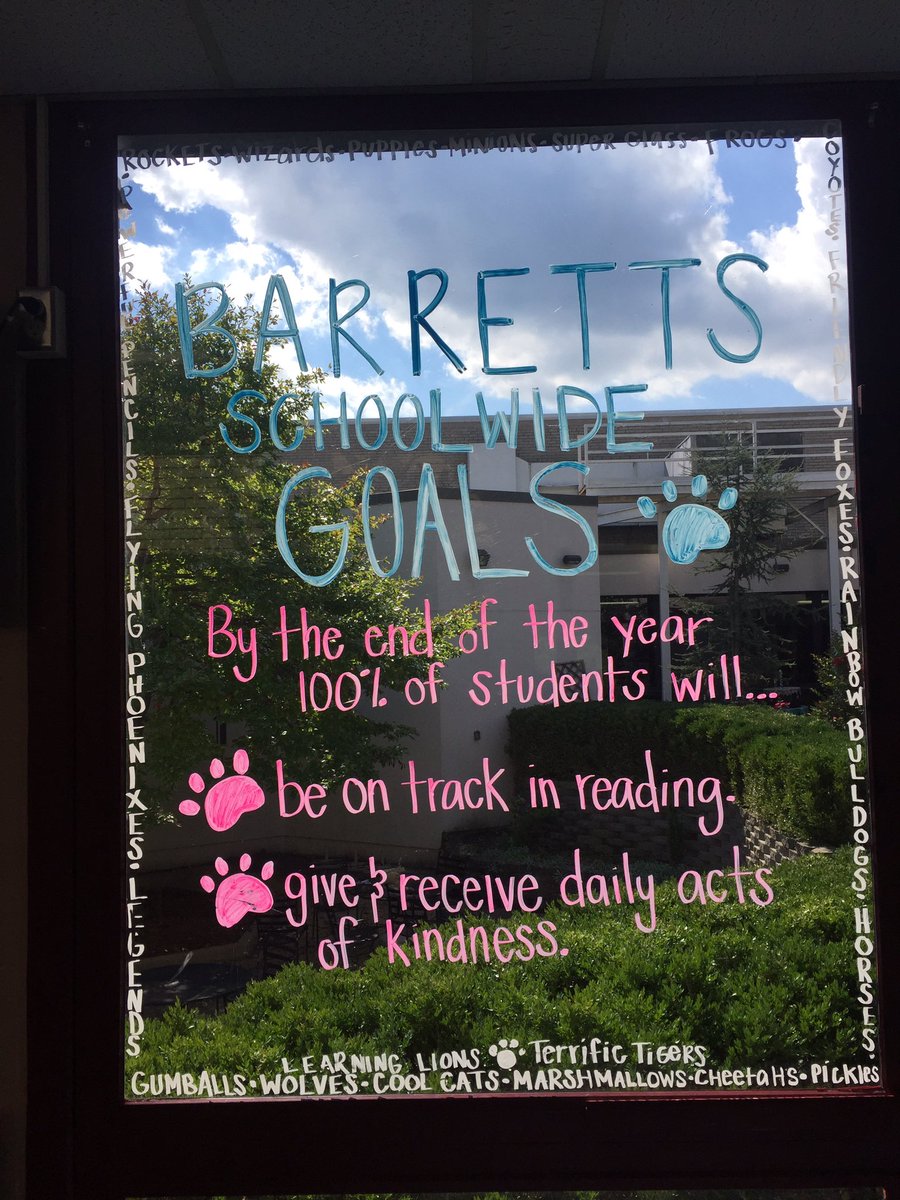 ROCKETS·WIZARDS·PUPPIES·MINIONS·SUPER GLASS·FROGS·
COYOTES·FRIENDLY FOXES·RAINBOW BULLDOGS·HORSES·
PENCILS·FLYING PHOENIXES·LEGENDS
BARRETTS
SCHOOLWIDE
GOALS
By the end of the year
100% of students will...
be on track in reading.
give & receive daily acts
of kindness.
LEARNING LIONS Terrific TIGERS
GUMBALLS·WOLVES·COOL CATS·MARSHMALLOWS·CHEETAHS·PICKLES